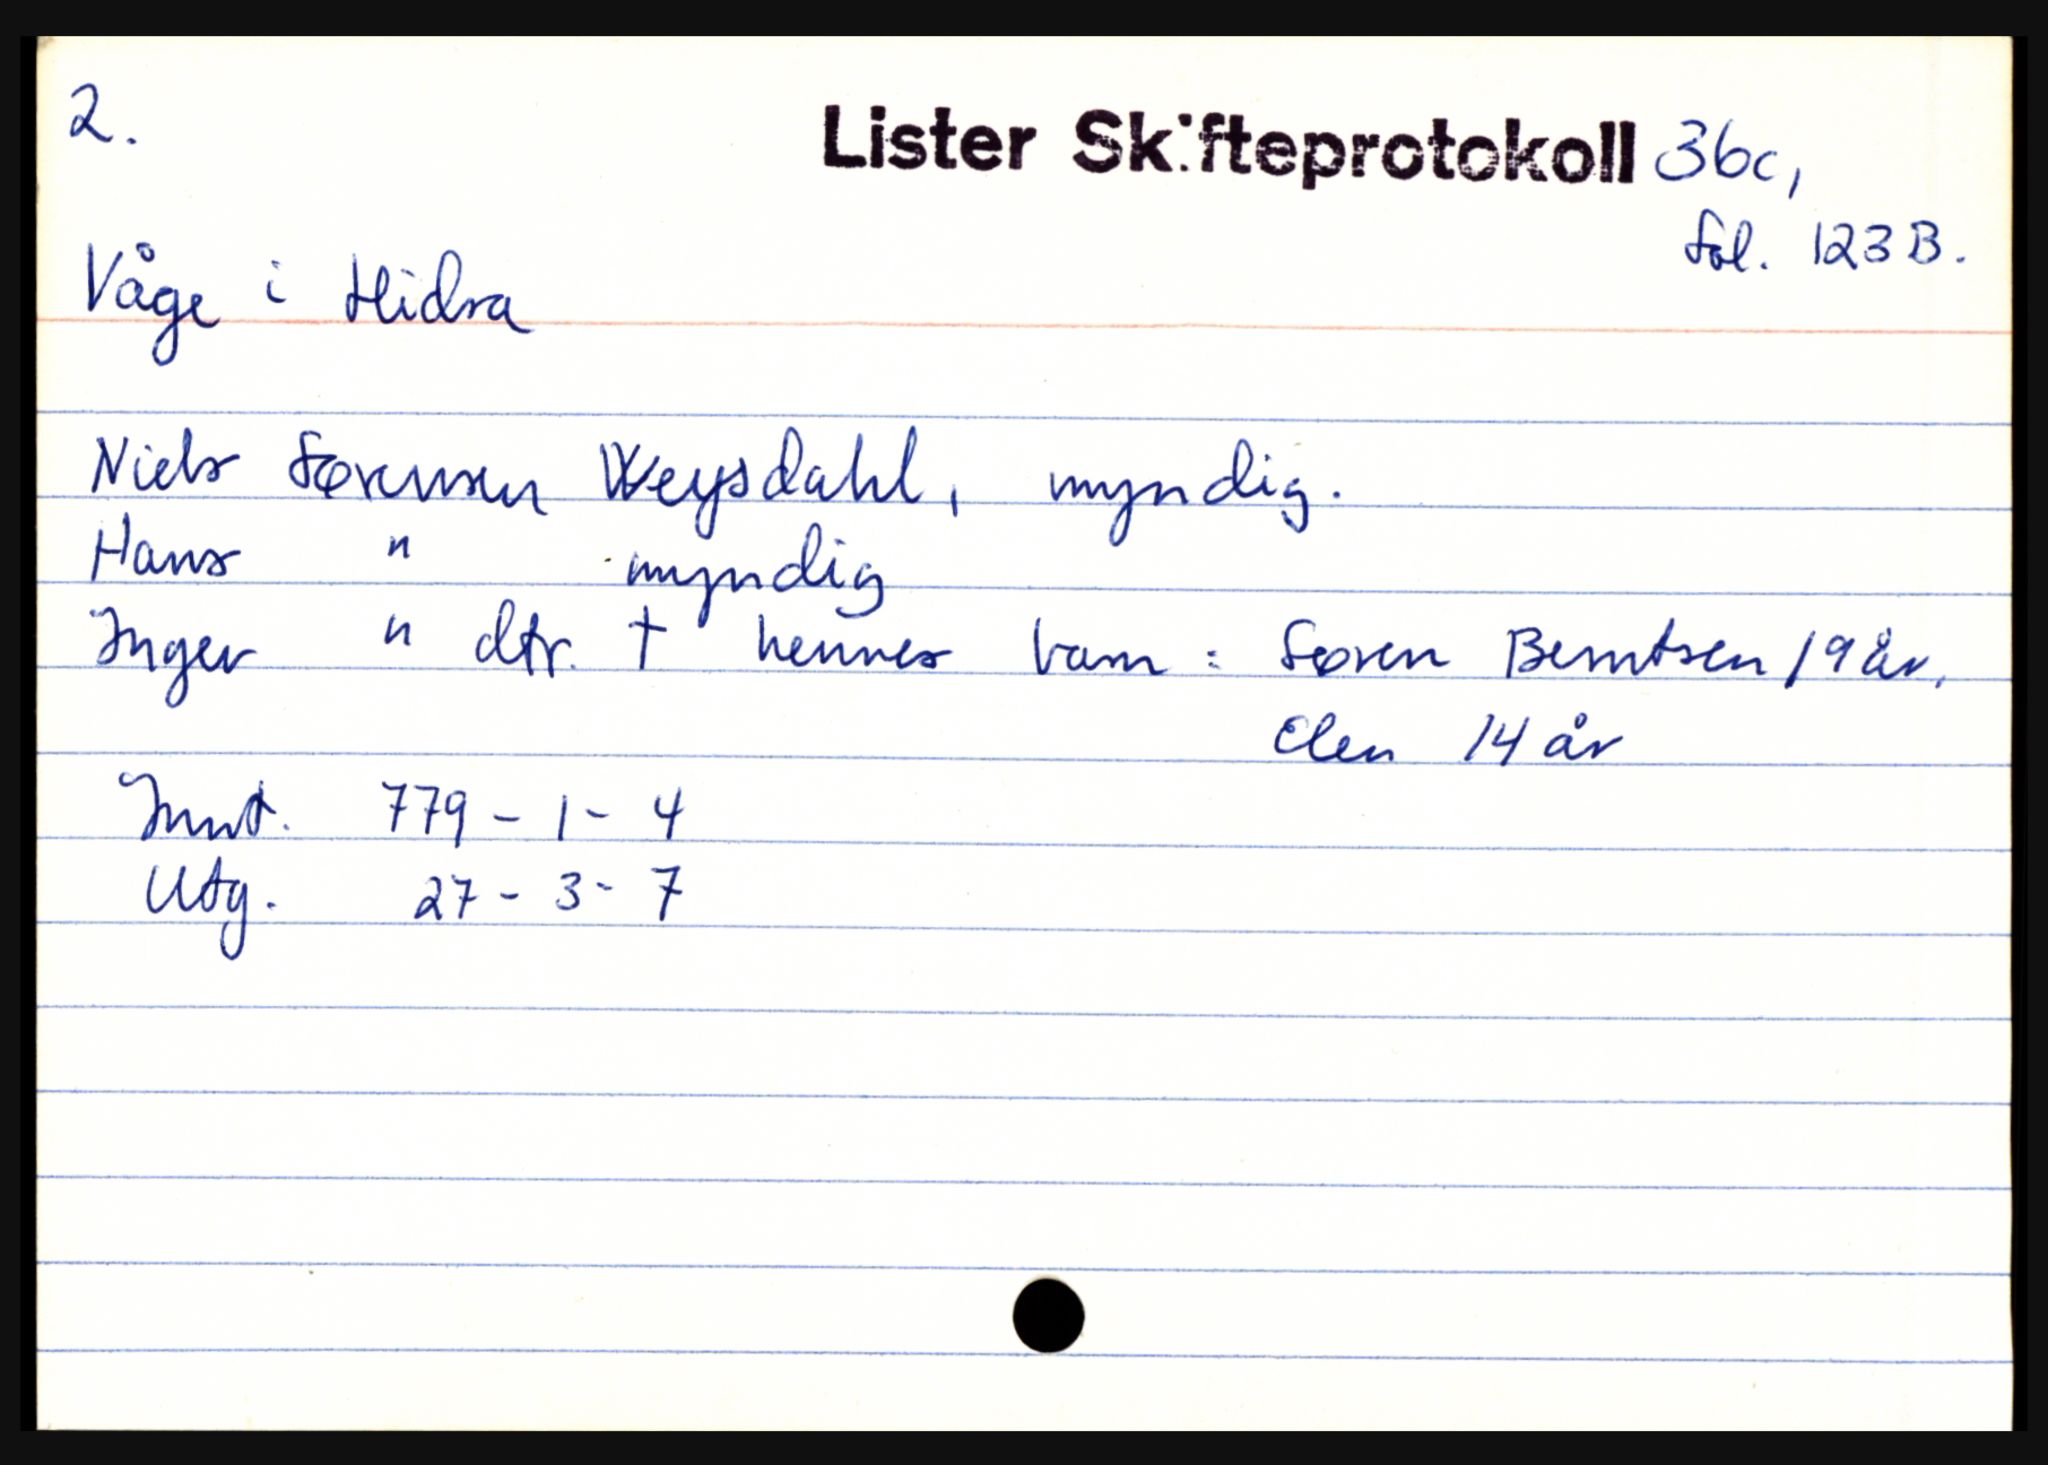 2.
Lister Skifteprotokoll 36c,
fol. 123 B.
Våge i Hidra
Niels Sørensen Weysdahl, myndig.
Hans " myndig
Inger " dtr. † hennes barn : Søren Berntsen 19 år,
Elen 14 år
Innt. 779 - 1 - 4
Utg. 27 - 3 - 7